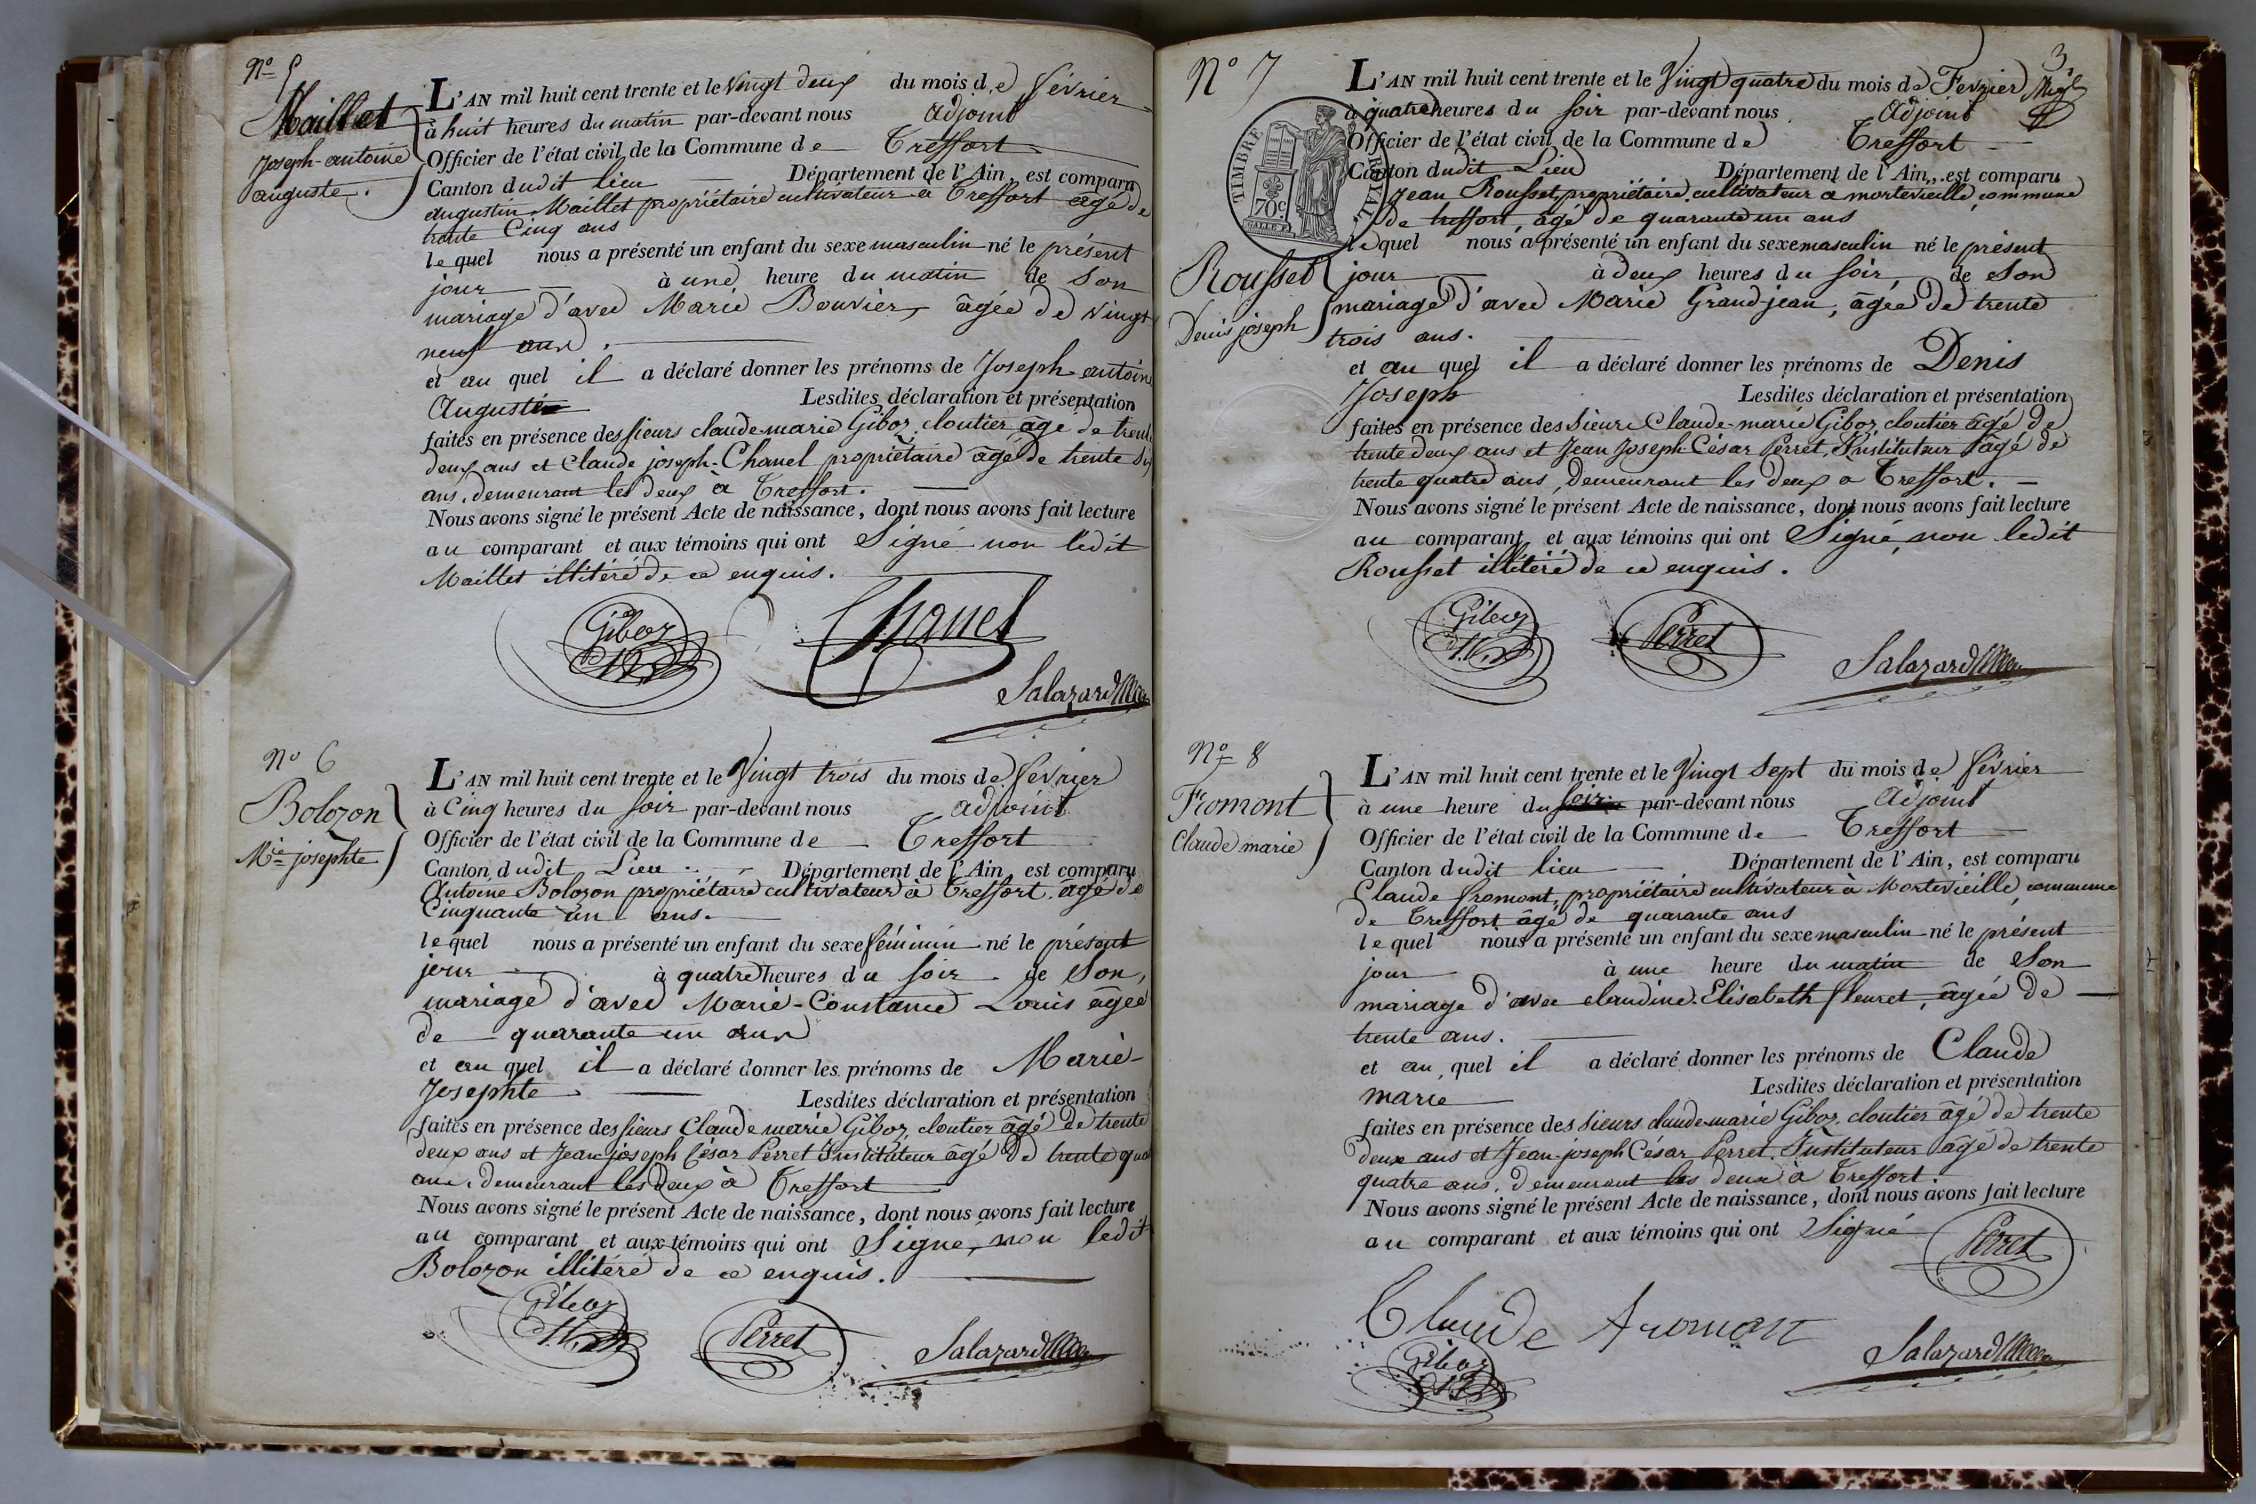 N° 5
Maillet
Joseph-antoine
auguste.
L'AN mil huit cent trente et le Vingt deux du mois de février
à huit heures du matin par-devant nous adjoint
Officier de l'état civil de la Commune de Treffort
Canton dudit lieu Département de l'Ain, est comparu
augustin Maillet propriétaire cultivateur à Treffort agé de
trente Cinq ans
lequel nous a présenté un enfant du sexe masculin né le présent
jour à une heure du matin de Son
mariage d'avec Marie Bouvier, âgée de vingt
neuf ans.
et au quel il a déclaré donner les prénoms de Joseph antoine
Auguste Lesdites déclaration et présentation
faites en présence des sieurs claude-marie Giboz, cloutier, âgé de trente
deux ans et Claude joseph Chanel propriétaire âgé de trente six
ans, demeurant les deux à Treffort.
Nous avons signé le présent Acte de naissance, dont nous avons fait lecture
au comparant et aux témoins qui ont Signé non ledit
Maillet illitéré de ce enquis.
Giboz Chanel
Salazard
N° 6
Bolozon
Mie josephte
L'AN mil huit cent trente et le Vingt trois du mois de février
à Cinq heures du soir par-devant nous adjoint
Officier de l'état civil de la Commune de Treffort
Canton dudit Lieu Département de l'Ain est comparu
Antoine Bolozon propriétaire cultivateur à Treffort agé de
Cinquante un ans.
lequel nous a présenté un enfant du sexe féminin né le présent
jour à quatre heures du soir de Son,
mariage d'avec Marie-Constance Louis âgée
de quarante un ans
et au quel il a déclaré donner les prénoms de Marie-
Josephte Lesdites déclaration et présentation
faites en présence des sieurs Claude marie Giboz cloutier âgé de trente
deux ans et Jean joseph César Perret Instituteur âgé de trente qua
ans, demeurant les deux à Treffort
Nous avons signé le présent Acte de naissance, dont nous avons fait lecture
au comparant et aux témoins qui ont Signé, non ledit
Bolozon illitéré de ce enquis.
Giboz Perret Salazard
3
N° 7
TIMBRE ROYAL
70c
L'AN mil huit cent trente et le Vingt quatre du mois de Fevrier
à quatre heures du soir par-devant nous Adjoint
Officier de l'état civil de la Commune de Treffort
Canton dudit Lieu Département de l'Ain, est comparu
Jean Rousset, propriétaire cultivateur à mortevieille, commune
de treffort, âgé de quarante un ans
lequel nous a présenté un enfant du sexe masculin né le présent
Rousset
Denis joseph
jour à deux heures du soir, de Son
mariage d'avec Marie Grandjean, âgée de trente
trois ans.
et au quel il a déclaré donner les prénoms de Denis
Joseph Lesdites déclaration et présentation
faites en présence des sieurs Claude-marie Giboz, cloutier âgé de
trente deux ans et Jean Joseph César Perret, Instituteur âgé de
trente quatre ans, demeurant les deux a Treffort.
Nous avons signé le présent Acte de naissance, dont nous avons fait lecture
au comparant et aux témoins qui ont Signé, non ledit
Rousset illitéré de ce enquis.
Giboz Perret Salazard
N° 8
Fromont
Claude marie
L'AN mil huit cent trente et le Vingt Sept du mois de février
à une heure du soir par-devant nous Adjoint
Officier de l'état civil de la Commune de Treffort
Canton dudit lieu Département de l'Ain, est comparu
Claude fromont, propriétaire cultivateur à Mortevieille, commune
de Treffort âgé de quarante ans
lequel nous a présenté un enfant du sexe masculin né le présent
jour à une heure du matin de Son
mariage d'avec claudine Elisabeth fleuret, âgée de
trente ans.
et au quel il a déclaré donner les prénoms de Claude
marie Lesdites déclaration et présentation
faites en présence des sieurs claude-marie Giboz, cloutier âgé de trente
deux ans et Jean-joseph César Perret, Instituteur âgé de trente
quatre ans, demeurant les deux à Treffort.
Nous avons signé le présent Acte de naissance, dont nous avons fait lecture
au comparant et aux témoins qui ont Signé
Perret
Claude fromont
Giboz Salazard